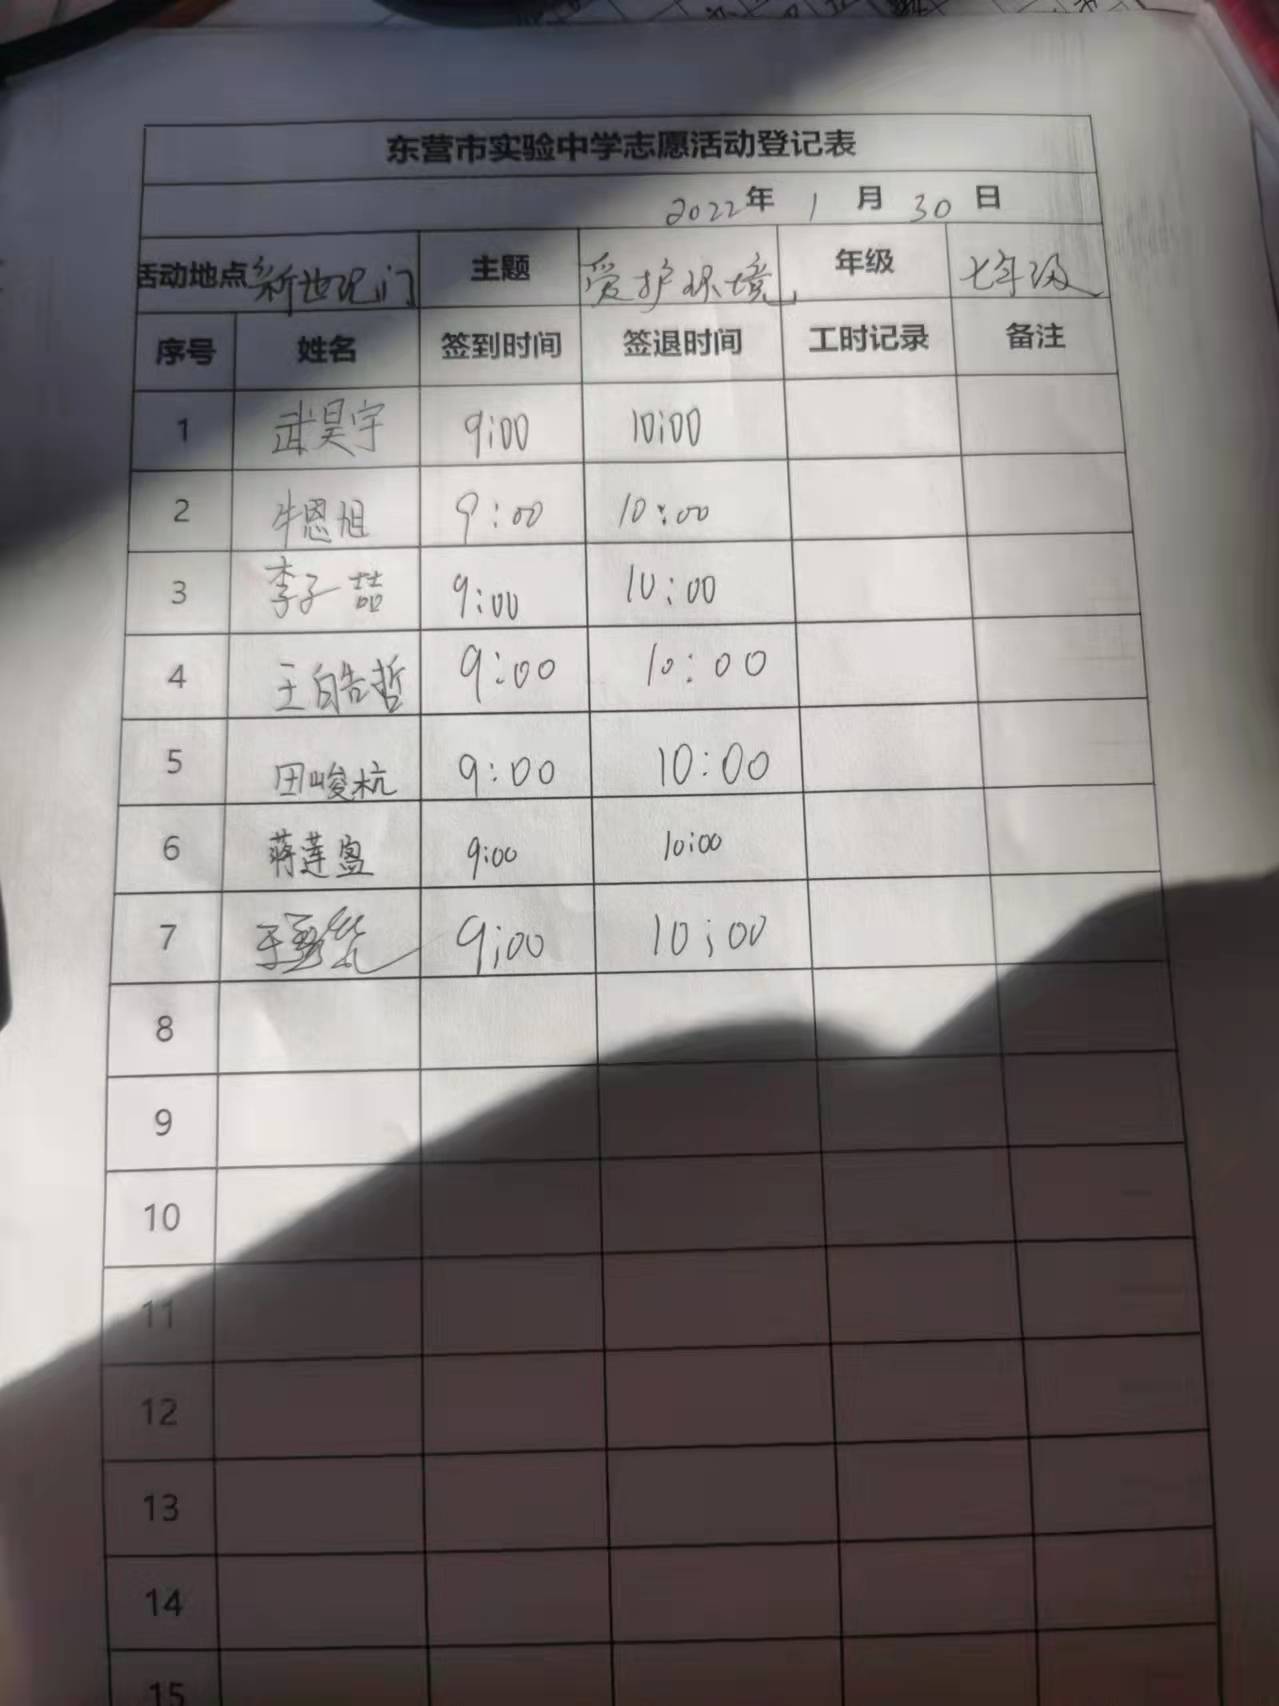 东营市实验中学志愿活动登记表
2022年 1 月 30 日
活动地点 新世纪门 主题 爱护环境 年级 七年级
序号 姓名 签到时间 签退时间 工时记录 备注
1 武昊宇 9:00 10:00
2 牛恩旭 9:00 10:00
3 李子喆 9:00 10:00
4 王皓哲 9:00 10:00
5 田峻杭 9:00 10:00
6 蒋莲盈 9:00 10:00
7 9:00 10:00
8
9
10
11
12
13
14
15